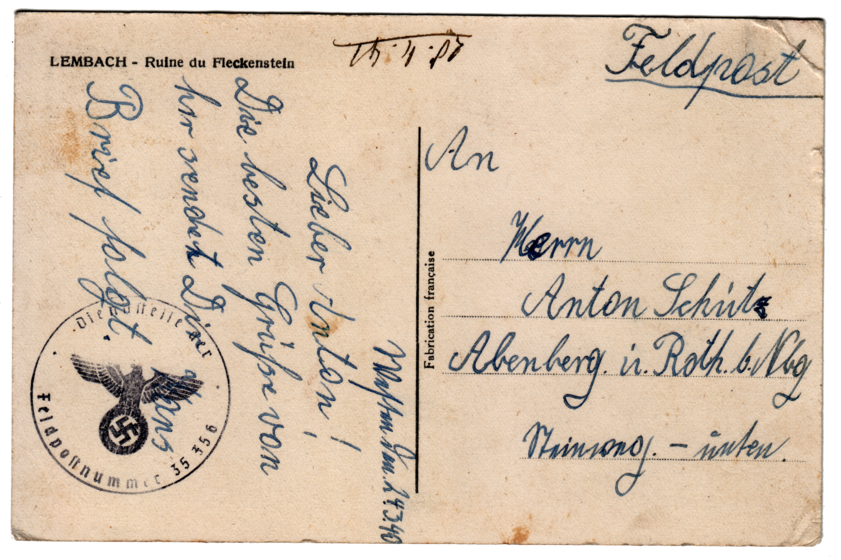 LEMBACH - Ruine du Fleckenstein
Feldpost
An
Herrn
Anton Schütz
Abenberg. ü. Roth. b. Nbg
Steinweg. - unten.
Fabrication française
24.3.40
Lieber Anton!
Die besten Grüße von
hir sendet Dir
Hans
Brief folgt.
Dienststelle der
Feldpostnummer 35 356